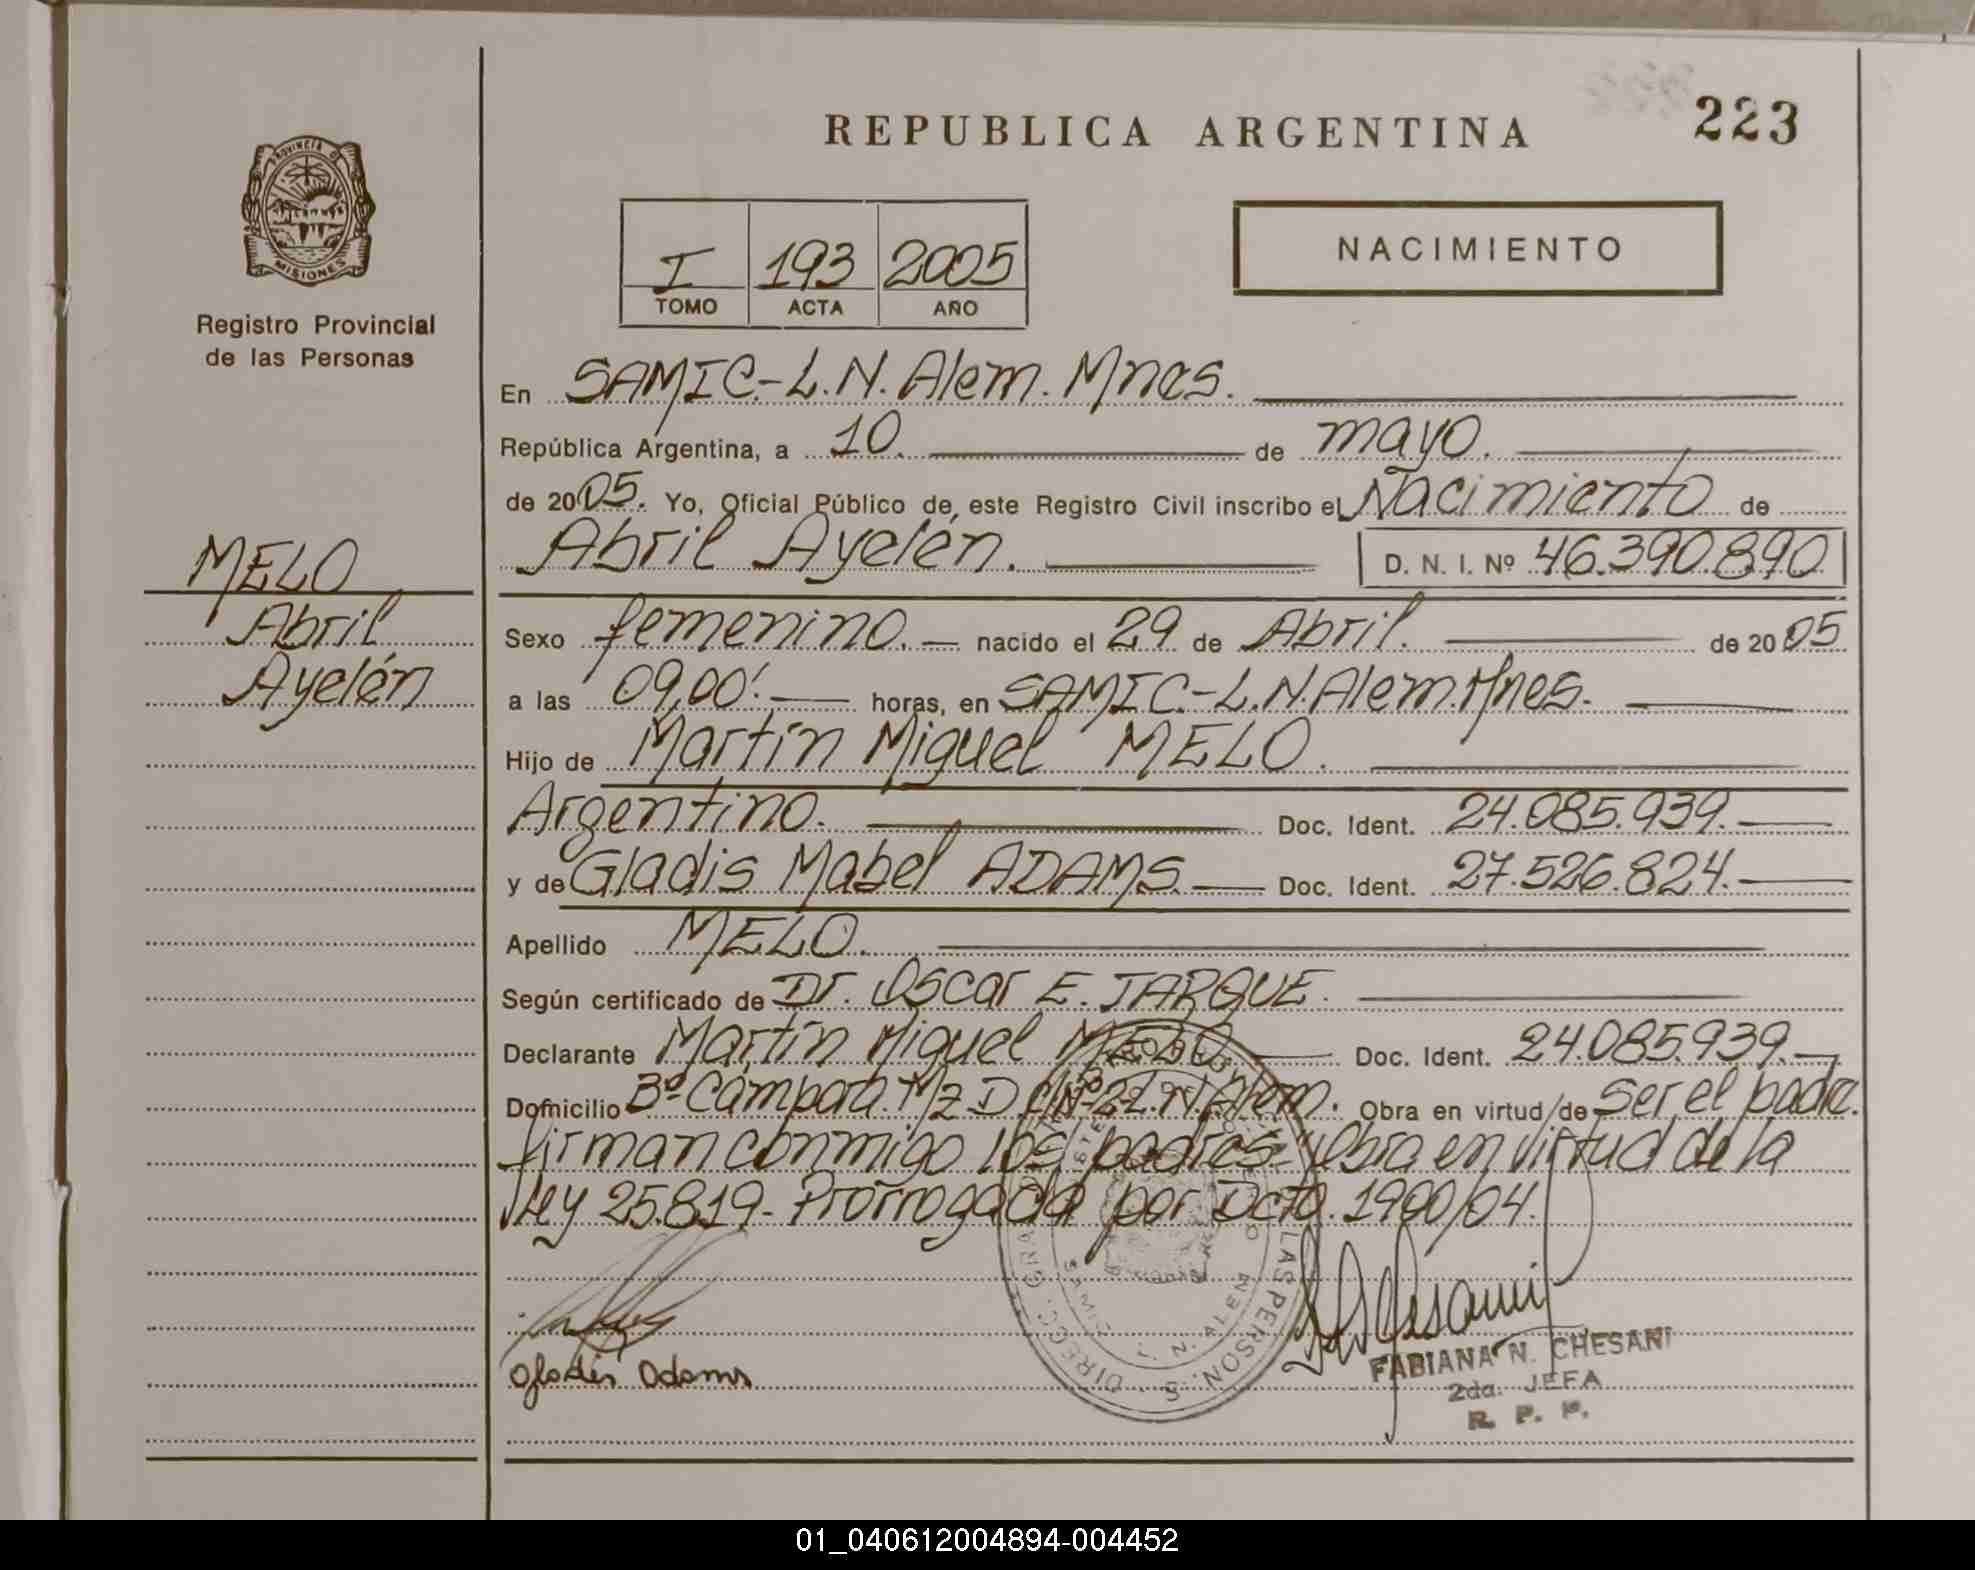 REPUBLICA ARGENTINA
223
PROVINCIA DE
MISIONES
Registro Provincial
de las Personas
I 193 2005
TOMO ACTA AÑO
NACIMIENTO
En SAMIC.-L.N.Alem.Mnes.
República Argentina, a 10. de mayo.
de 2005. Yo, Oficial Público de este Registro Civil inscribo el Nacimiento de
Abril Ayelén. D. N. I. Nº 46.390.890
MELO
Abril
Ayelén
Sexo femenino. nacido el 29 de Abril. de 2005
a las 09,00'. horas, en SAMIC.-L.N.Alem.Mnes.
Hijo de Martín Miguel MELO.
Argentino. Doc. Ident. 24.085.939.
y de Gladis Mabel ADAMS Doc. Ident. 27.526.824.
Apellido MELO.
Según certificado de Dr. Oscar E. JARQUE.
Declarante Martín Miguel MELO Doc. Ident. 24.085.939.
Domicilio Bº Cámpora. Mz D L.N.Alem. Obra en virtud de ser el padre.
firman conmigo los padres. Obra en virtud de la
ley 25.819- Prorrogada por Dcto. 1900/04.
DIRECC. GRAL. LAS PERSONAS
SAMIC L. N. ALEM
Gladis Adams
FABIANA N. CHESANI
2da. JEFA
R. P. P.
01_040612004894-004452